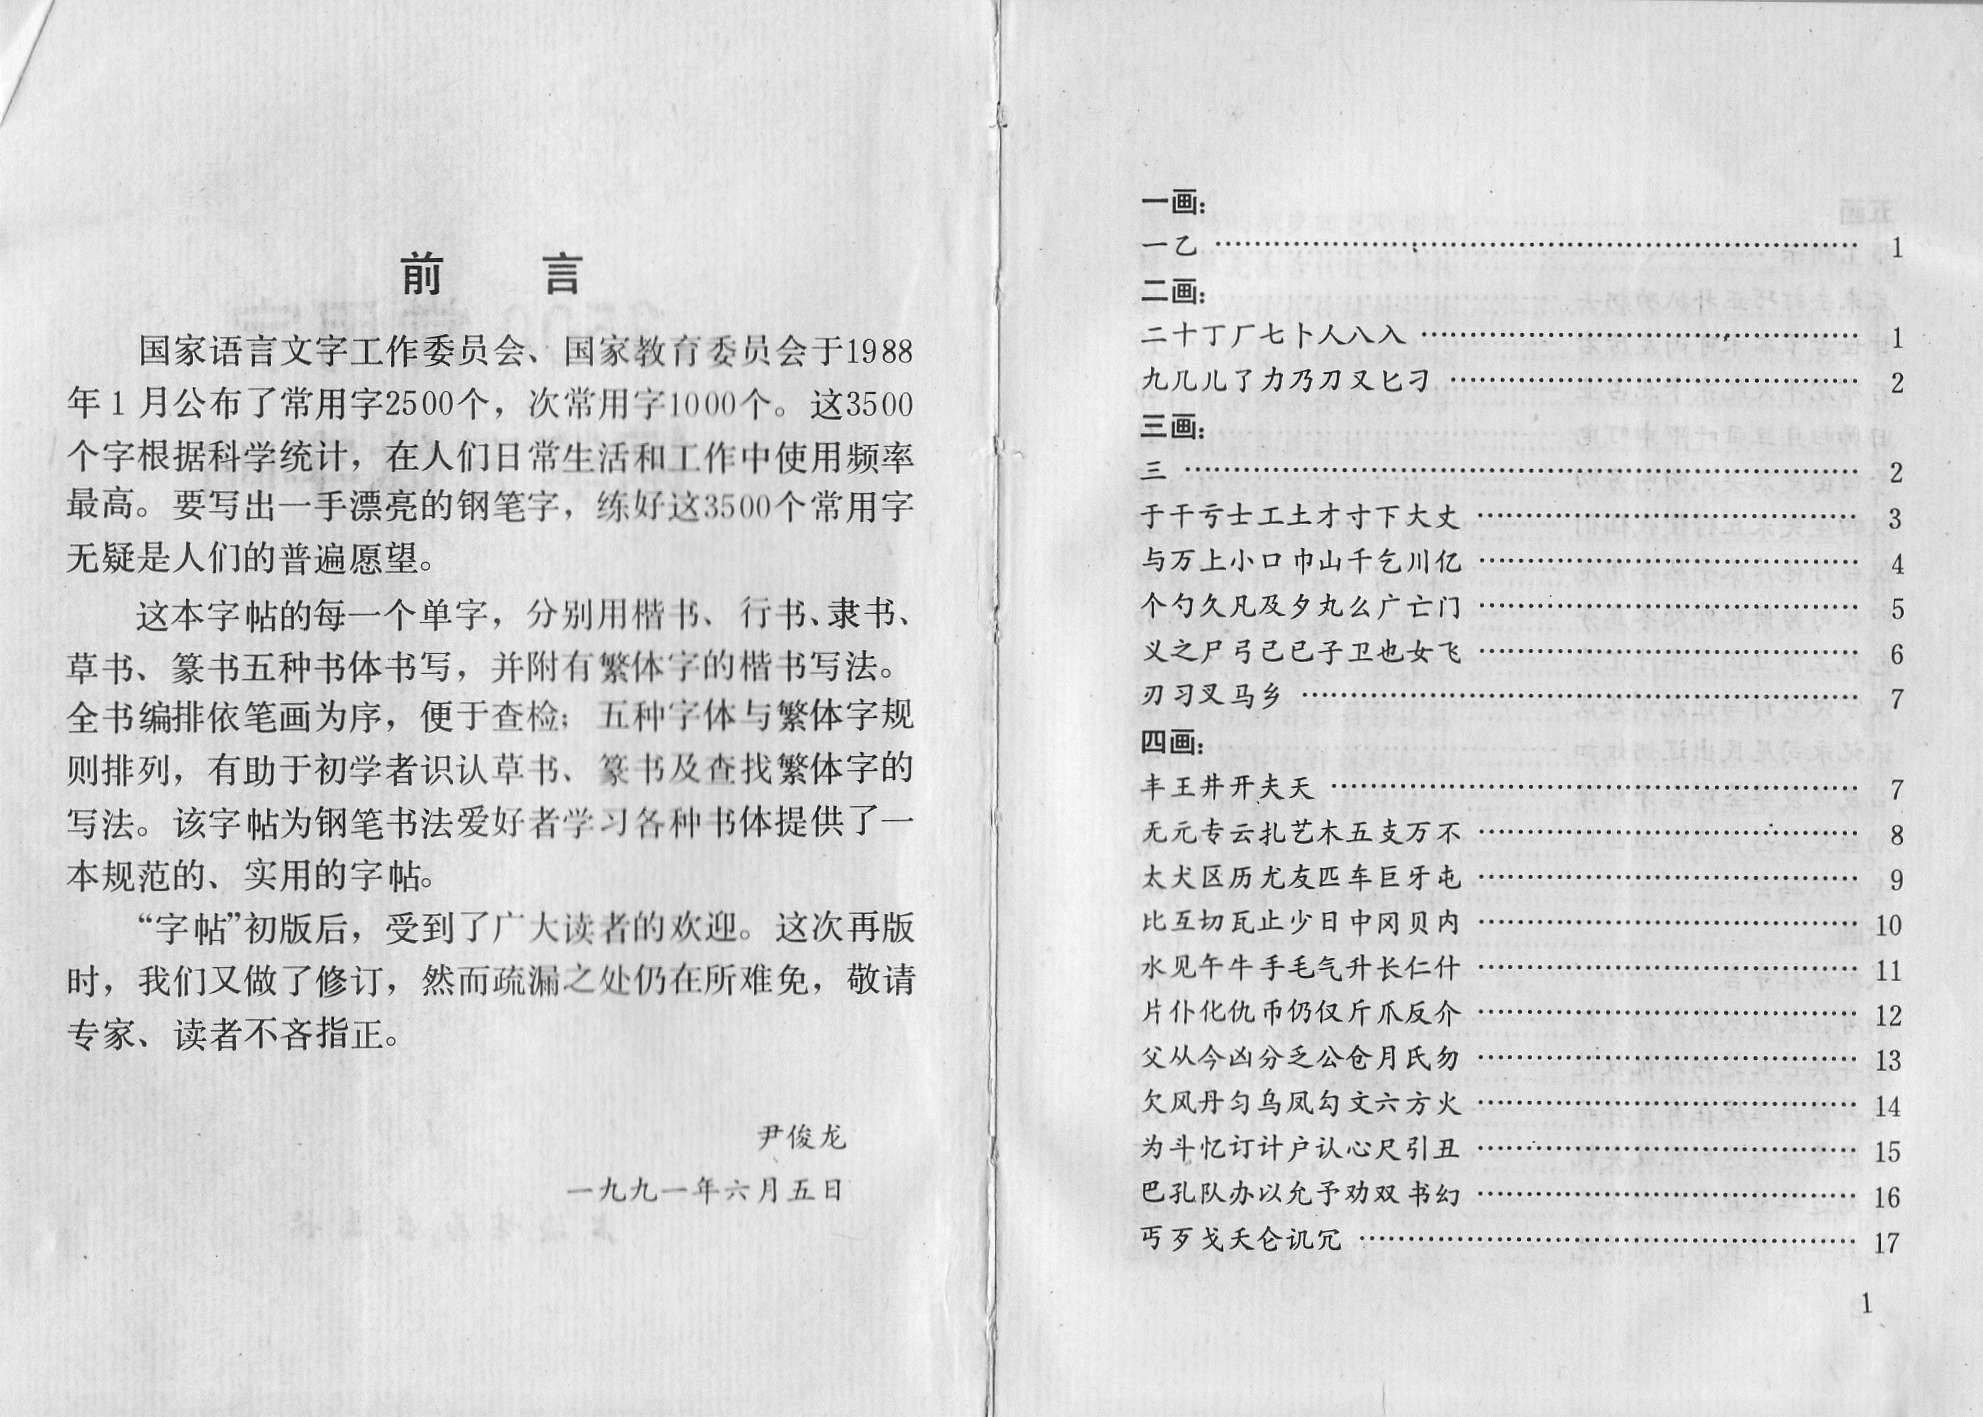 前言
国家语言文字工作委员会、国家教育委员会于1988
年1月公布了常用字2500个，次常用字1000个。这3500
个字根据科学统计，在人们日常生活和工作中使用频率
最高。要写出一手漂亮的钢笔字，练好这3500个常用字
无疑是人们的普遍愿望。
这本字帖的每一个单字，分别用楷书、行书、隶书、
草书、篆书五种书体书写，并附有繁体字的楷书写法。
全书编排依笔画为序，便于查检；五种字体与繁体字规
则排列，有助于初学者识认草书、篆书及查找繁体字的
写法。该字帖为钢笔书法爱好者学习各种书体提供了一
本规范的、实用的字帖。
“字帖”初版后，受到了广大读者的欢迎。这次再版
时，我们又做了修订，然而疏漏之处仍在所难免，敬请
专家、读者不吝指正。
尹俊龙
一九九一年六月五日
一画：
一乙 …… 1
二画：
二十丁厂七卜人八入 …… 1
九几儿了力乃刀又匕刁 …… 2
三画：
三 …… 2
于干亏士工土才寸下大丈 …… 3
与万上小口巾山千乞川亿 …… 4
个勺久凡及夕丸么广亡门 …… 5
义之尸弓己已子卫也女飞 …… 6
刃习叉马乡 …… 7
四画：
丰王井开夫天 …… 7
无元专云扎艺木五支万不 …… 8
太犬区历尤友匹车巨牙屯 …… 9
比互切瓦止少日中冈贝内 …… 10
水见午牛手毛气升长仁什 …… 11
片仆化仇币仍仅斤爪反介 …… 12
父从今凶分乏公仓月氏勿 …… 13
欠风丹匀乌凤勾文六方火 …… 14
为斗忆订计户认心尺引丑 …… 15
巴孔队办以允予劝双书幻 …… 16
丐歹戈夭仑讥冗 …… 17
1